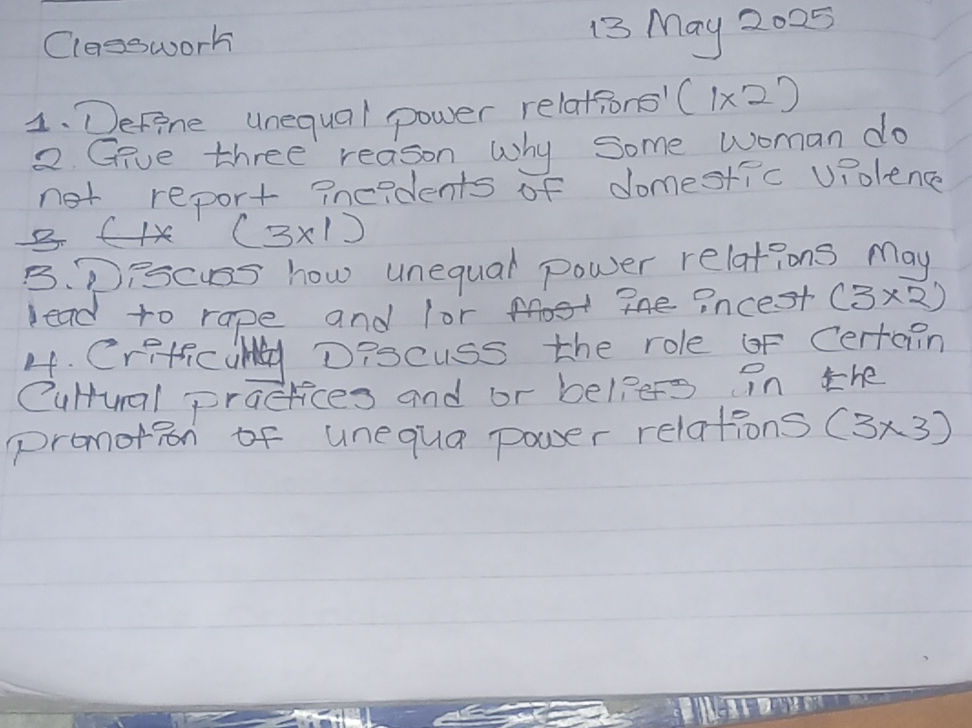 Classwork 13 May 2025
1. Define unequal power relations' (1x2)
2. Give three reason why some woman do
not report incidents of domestic violence
3. (1x (3x1)
3. Discuss how unequal power relations may
lead to rape and lor most ine incest (3x2)
4. Critically Discuss the role of certain
Cultural practices and or beliefs in the
promotion of unequa power relations (3x3)